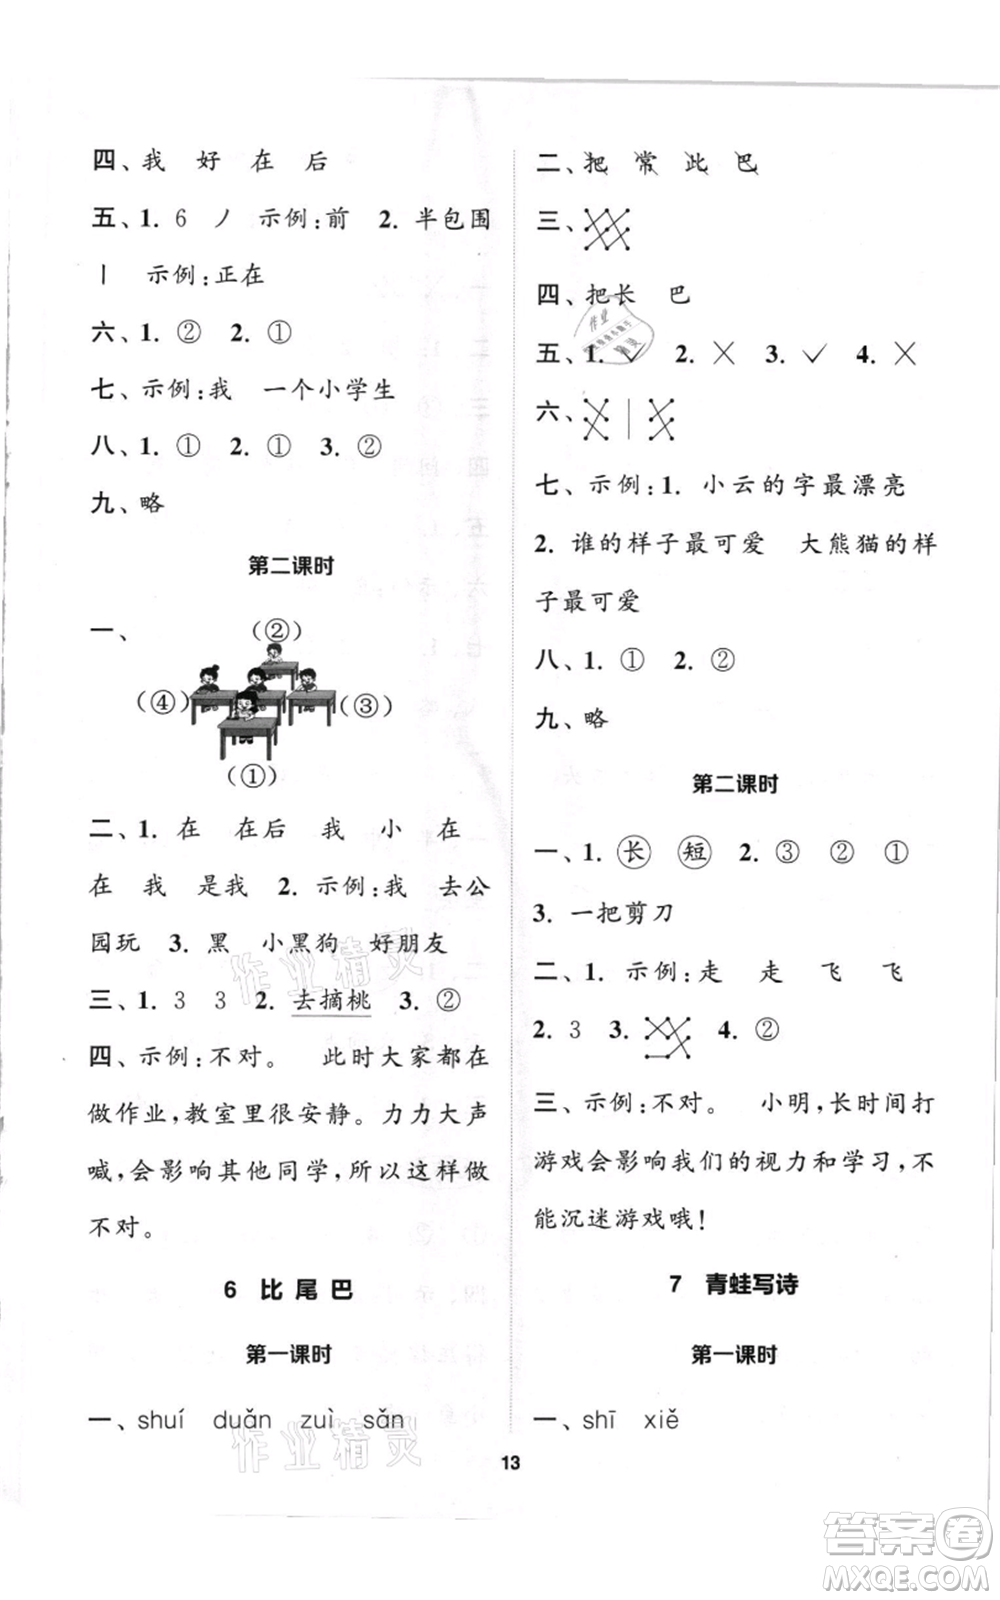 四、我 好 在 后
五、1. 6 丿 示例:前 2. 半包围
丨 示例:正在
六、1. ② 2. ①
七、示例:我 一个小学生
八、1. ① 2. ① 3. ②
九、略
第二课时
一、
(②)
(④)
(③)
(①)
二、1. 在 在后 我 小 在
在 我 是我 2. 示例:我 去公
园玩 3. 黑 小黑狗 好朋友
三、1. 3 3 2. 去摘桃 3. ②
四、示例:不对。 此时大家都在
做作业,教室里很安静。力力大声
喊,会影响其他同学,所以这样做
不对。
6 比尾巴
第一课时
一、shuí duǎn zuì sǎn
二、把 常 此 巴
三、
四、把长 巴
五、1. ✓ 2. ✕ 3. ✓ 4. ✕
六、
七、示例:1. 小云的字最漂亮
2. 谁的样子最可爱 大熊猫的样
子最可爱
八、1. ① 2. ②
九、略
第二课时
一、1. 长 短 2. ③ ② ①
3. 一把剪刀
二、1. 示例:走 走 飞 飞
2. 3 3. 4. ②
三、示例:不对。 小明,长时间打
游戏会影响我们的视力和学习,不
能沉迷游戏哦!
7 青蛙写诗
第一课时
一、shī xiě
13
作业精灵
作业精灵
答案圈
MXQE.COM